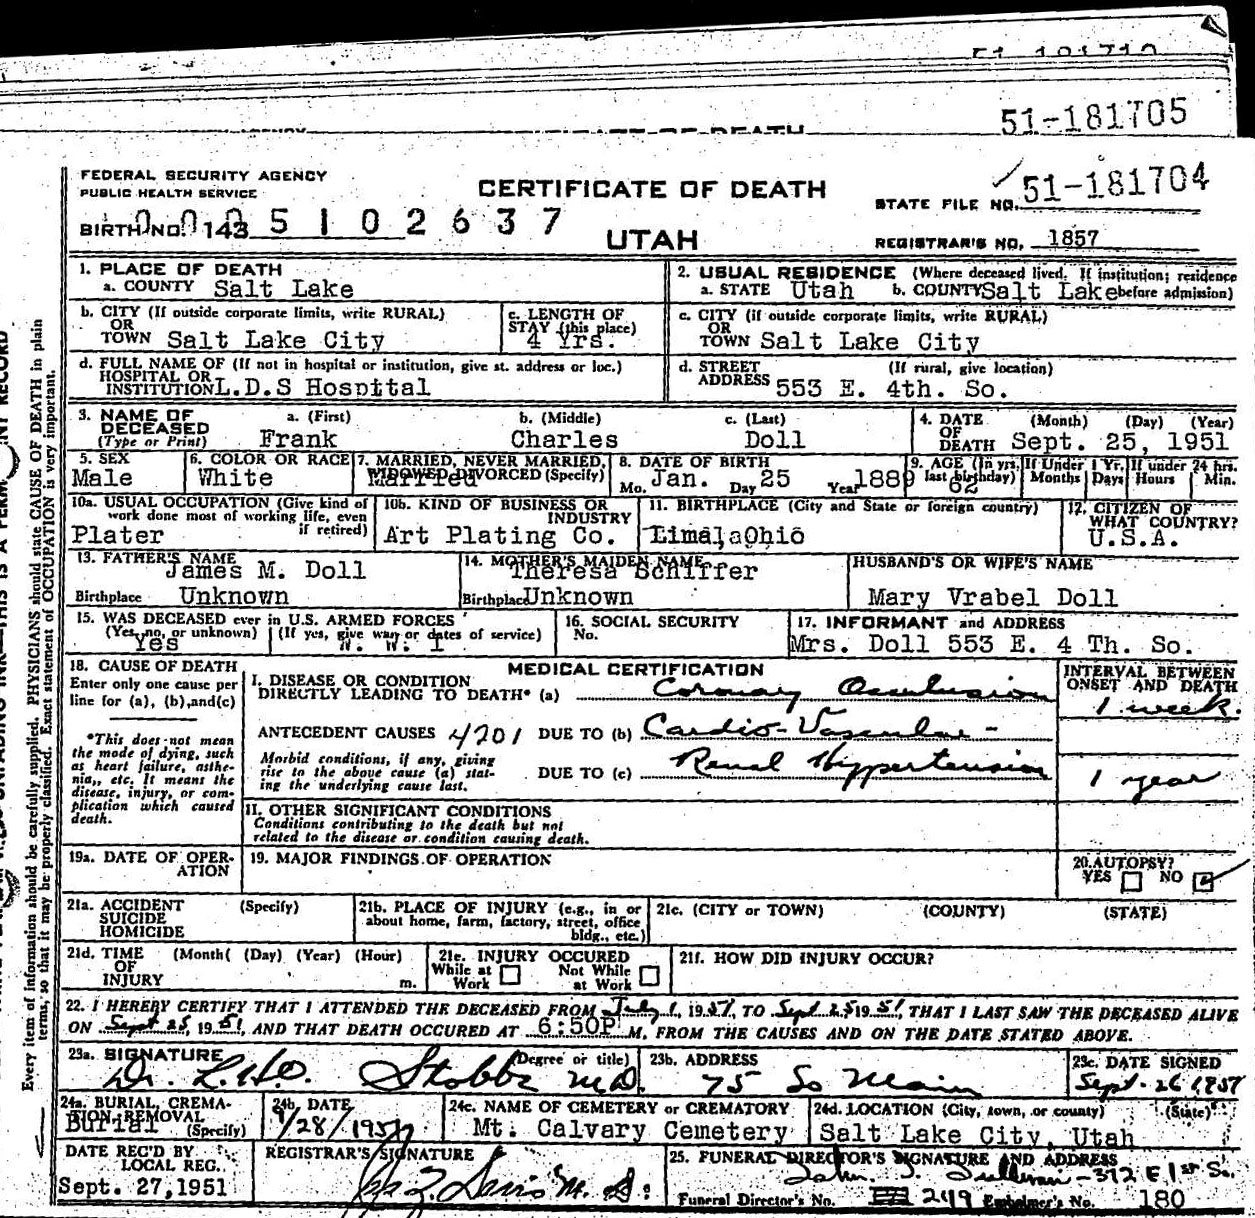 51-181710
51-181705
CERTIFICATE OF DEATH
FEDERAL SECURITY AGENCY
PUBLIC HEALTH SERVICE
CERTIFICATE OF DEATH
STATE FILE NO. 51-181704
BIRTH NO. 143 5 1 0 2 6 3 7
UTAH
REGISTRAR'S NO. 1857
1. PLACE OF DEATH
a. COUNTY Salt Lake
2. USUAL RESIDENCE (Where deceased lived. If institution; residence
a. STATE Utah b. COUNTY Salt Lake before admission)
b. CITY (If outside corporate limits, write RURAL)
OR
TOWN Salt Lake City
c. LENGTH OF
STAY (this place)
4 Yrs.
c. CITY (if outside corporate limits, write RURAL)
OR
TOWN Salt Lake City
d. FULL NAME OF (If not in hospital or institution, give st. address or loc.)
HOSPITAL OR
INSTITUTION L.D.S Hospital
d. STREET (If rural, give location)
ADDRESS 553 E. 4th. So.
3. NAME OF
DECEASED
(Type or Print)
a. (First) b. (Middle) c. (Last)
Frank Charles Doll
4. DATE (Month) (Day) (Year)
OF
DEATH Sept. 25, 1951
5. SEX
Male
6. COLOR OR RACE
White
7. MARRIED, NEVER MARRIED,
WIDOWED, DIVORCED (Specify)
Married
8. DATE OF BIRTH
Mo. Jan. Day 25 Year 1889
9. AGE (In yrs. last birthday)
62
If Under 1 Yr.
Months Days
If under 24 hrs.
Hours Min.
10a. USUAL OCCUPATION (Give kind of
work done most of working life, even
if retired)
Plater
10b. KIND OF BUSINESS OR
INDUSTRY
Art Plating Co.
11. BIRTHPLACE (City and State or foreign country)
Lima, Ohio
12. CITIZEN OF
WHAT COUNTRY?
U.S.A.
13. FATHER'S NAME
James M. Doll
Birthplace Unknown
14. MOTHER'S MAIDEN NAME
Theresa Schiffer
Birthplace Unknown
HUSBAND'S OR WIFE'S NAME
Mary Vrabel Doll
15. WAS DECEASED ever in U.S. ARMED FORCES
(Yes, no, or unknown) (If yes, give war or dates of service)
Yes W. W. 1
16. SOCIAL SECURITY
No.
17. INFORMANT and ADDRESS
Mrs. Doll 553 E. 4 Th. So.
18. CAUSE OF DEATH
Enter only one cause per
line for (a), (b), and (c)
*This does not mean
the mode of dying, such
as heart failure, asthe-
nia,, etc. It means the
disease, injury, or com-
plication which caused
death.
MEDICAL CERTIFICATION
I. DISEASE OR CONDITION
DIRECTLY LEADING TO DEATH* (a) Coronary Occlusion
ANTECEDENT CAUSES 4201 DUE TO (b) Cardio-Vascular-
Morbid conditions, if any, giving
rise to the above cause (a) stat-
ing the underlying cause last.
DUE TO (c) Renal Hyppertension
INTERVAL BETWEEN
ONSET AND DEATH
1 week.
1 year
II. OTHER SIGNIFICANT CONDITIONS
Conditions contributing to the death but not
related to the disease or condition causing death.
19a. DATE OF OPER-
ATION
19. MAJOR FINDINGS OF OPERATION
20. AUTOPSY?
YES NO
21a. ACCIDENT (Specify)
SUICIDE
HOMICIDE
21b. PLACE OF INJURY (e.g., in or
about home, farm, factory, street, office
bldg., etc.)
21c. (CITY or TOWN) (COUNTY) (STATE)
21d. TIME (Month( (Day) (Year) (Hour)
OF
INJURY m.
21e. INJURY OCCURED
While at Work Not While at Work
21f. HOW DID INJURY OCCUR?
22. I HEREBY CERTIFY THAT I ATTENDED THE DECEASED FROM July 1, 1951, TO Sept 25 1951, THAT I LAST SAW THE DECEASED ALIVE
ON Sept 25, 1951, AND THAT DEATH OCCURED AT 6:50P M. FROM THE CAUSES AND ON THE DATE STATED ABOVE.
23a. SIGNATURE (Degree or title)
Stobbe M.D.
23b. ADDRESS
75 So Main
23c. DATE SIGNED
Sept. 26, 1951
24a. BURIAL, CREMA-
TION, REMOVAL
(Specify)
Burial
24b. DATE
9/28/1951
24c. NAME OF CEMETERY or CREMATORY
Mt. Calvary Cemetery
24d. LOCATION (City, town, or county) (State)
Salt Lake City, Utah
DATE REC'D BY
LOCAL REG.
Sept. 27, 1951
REGISTRAR'S SIGNATURE
25. FUNERAL DIRECTOR'S SIGNATURE AND ADDRESS
Sullivan - 392 E 1st So.
Funeral Director's No. 249 Embalmer's No. 180
Every item of information should be carefully supplied. PHYSICIANS should state CAUSE OF DEATH in plain
terms, so that it may be properly classified. Exact statement of OCCUPATION is very important.